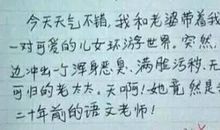 今天天气不错，我和老婆带着我
一对可爱的儿女环游世界。突然，
边冲出一个浑身恶臭、满脸污秽、无
可归的老太太，天啊！她竟然是
二十年前的语文老师！